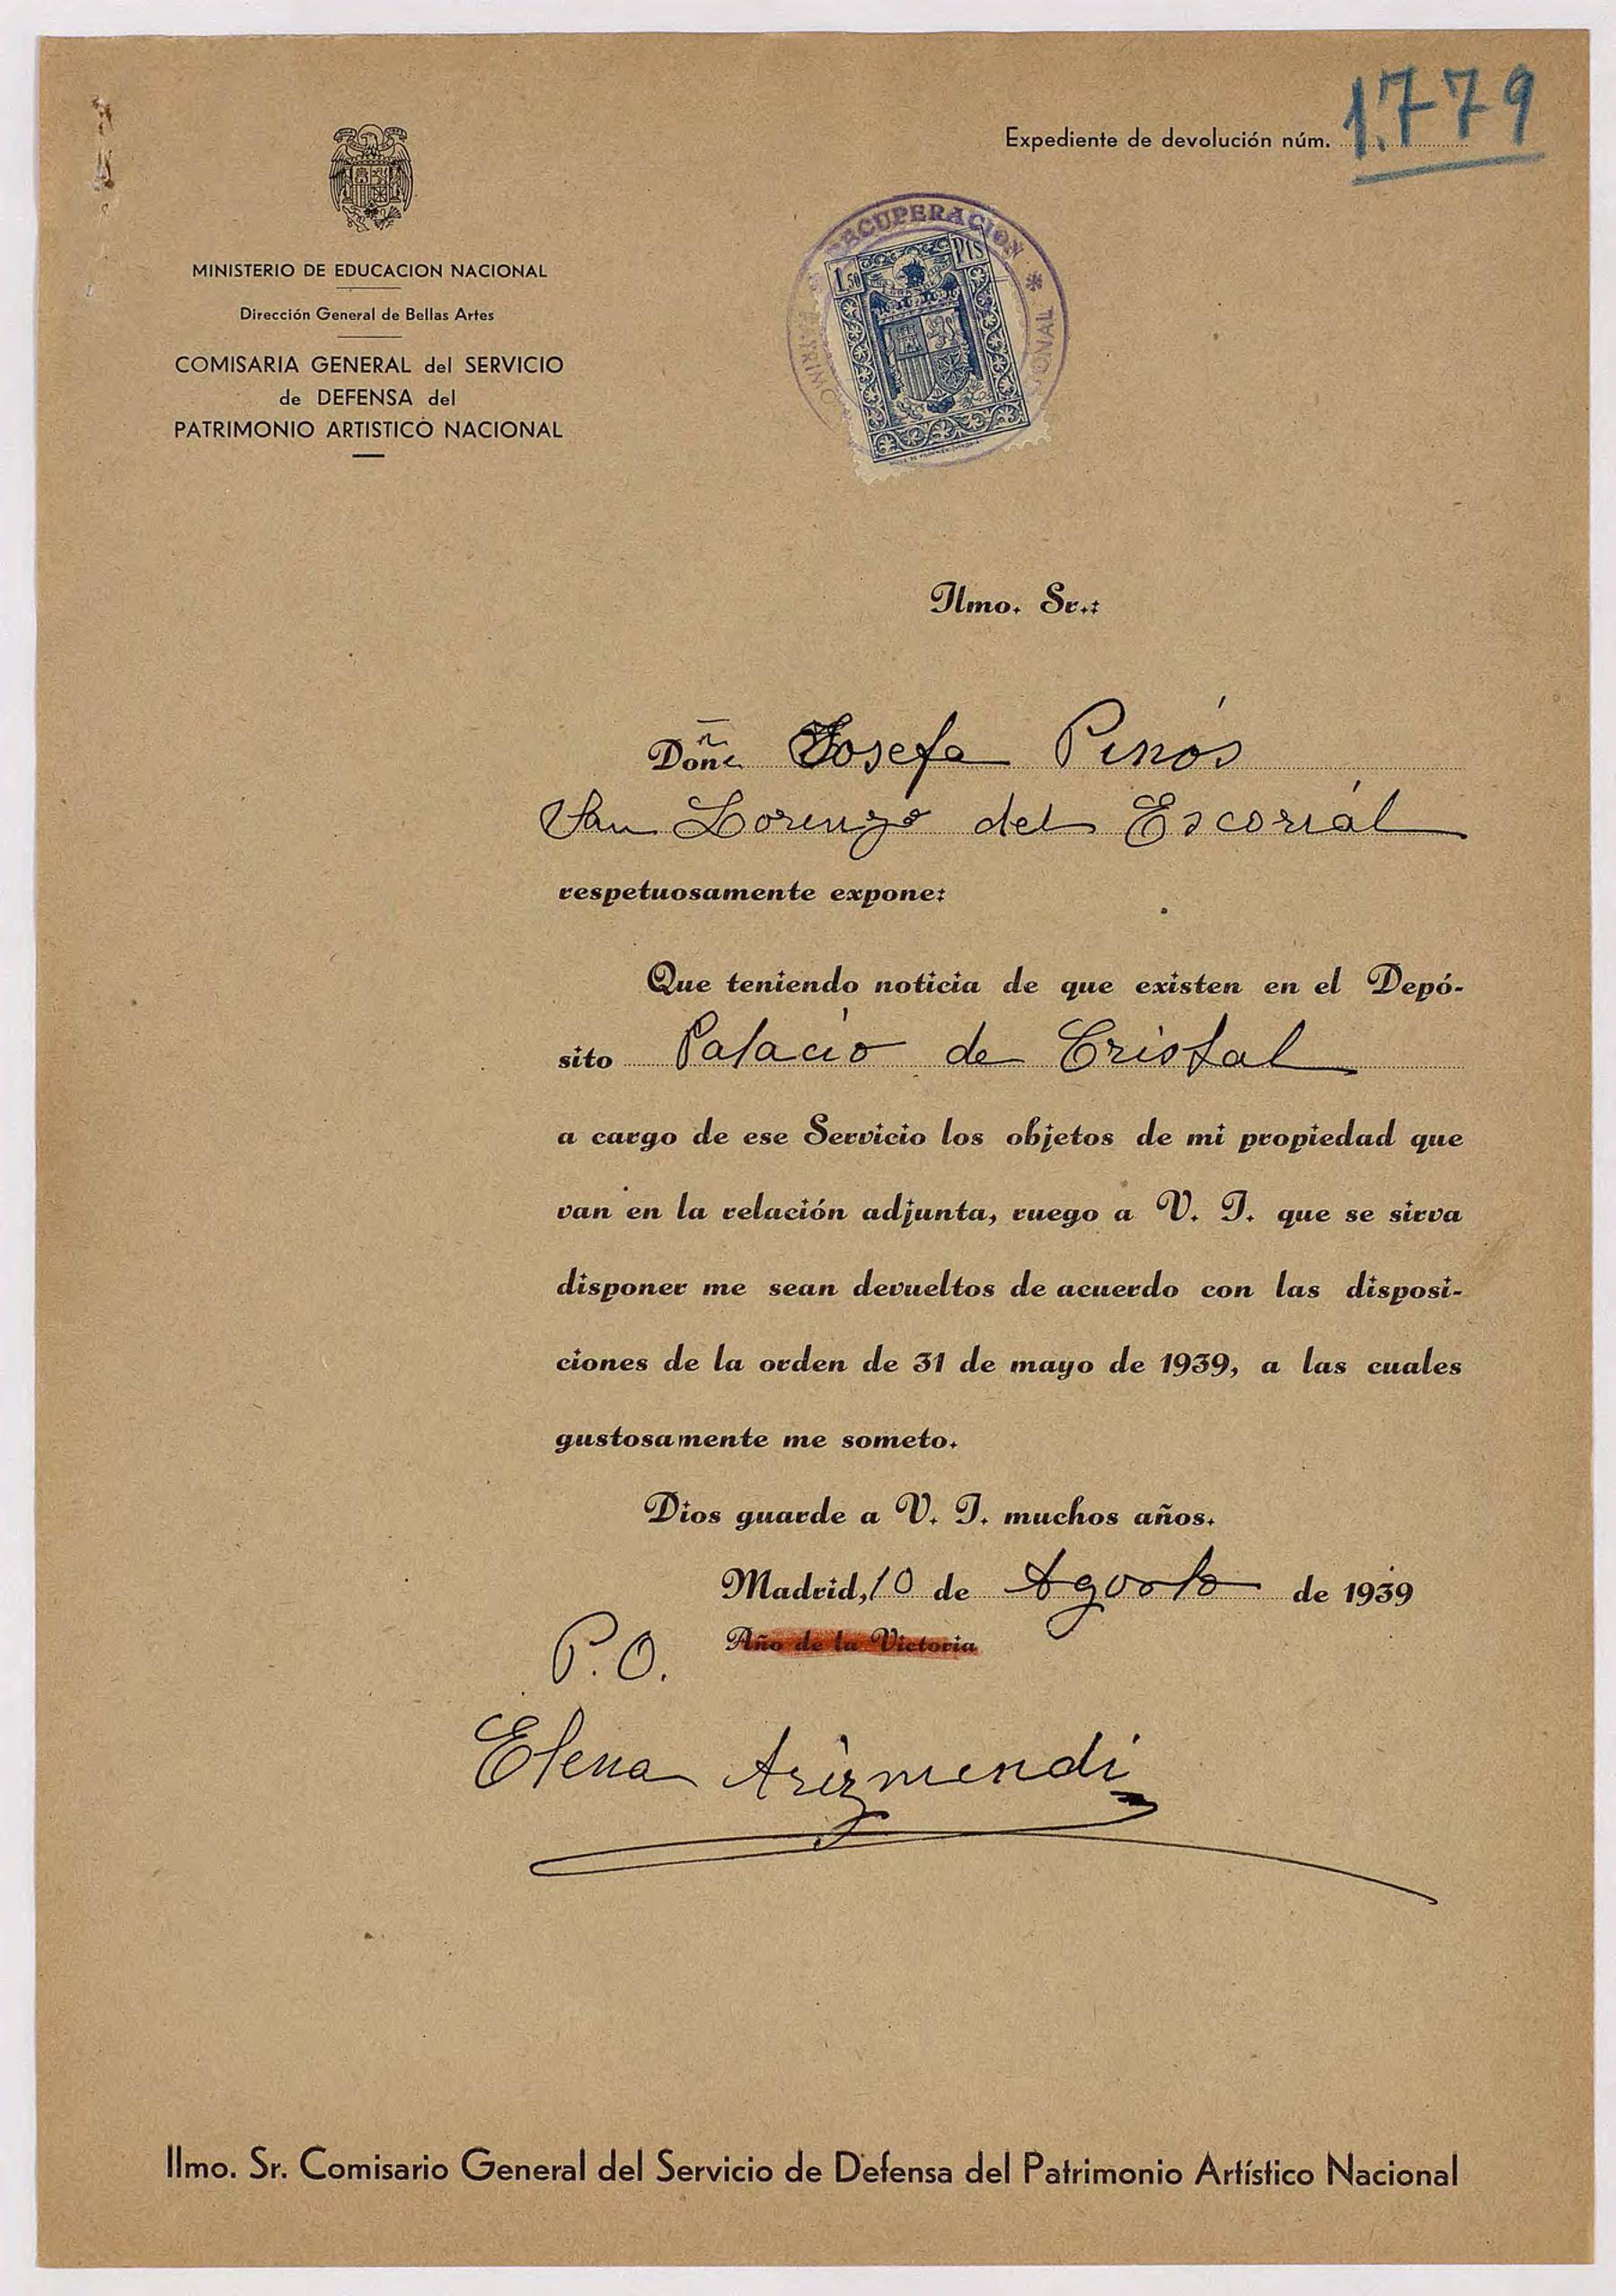 Expediente de devolución núm. 1.779
MINISTERIO DE EDUCACION NACIONAL
Dirección General de Bellas Artes
COMISARIA GENERAL del SERVICIO
de DEFENSA del
PATRIMONIO ARTISTICO NACIONAL
RECUPERACION * PATRIMO ONAL
1,50 PTS
Ilmo. Sr.:
Doña Josefa Pinós
San Lorenzo del Escorial
respetuosamente expone:
Que teniendo noticia de que existen en el Depó-
sito Palacio de Cristal
a cargo de ese Servicio los objetos de mi propiedad que
van en la relación adjunta, ruego a V. I. que se sirva
disponer me sean devueltos de acuerdo con las disposi-
ciones de la orden de 31 de mayo de 1939, a las cuales
gustosamente me someto.
Dios guarde a V. I. muchos años.
Madrid, 10 de Agosto de 1939
Año de la Victoria
P.O.
Elena Arizmendi
Ilmo. Sr. Comisario General del Servicio de Defensa del Patrimonio Artístico Nacional